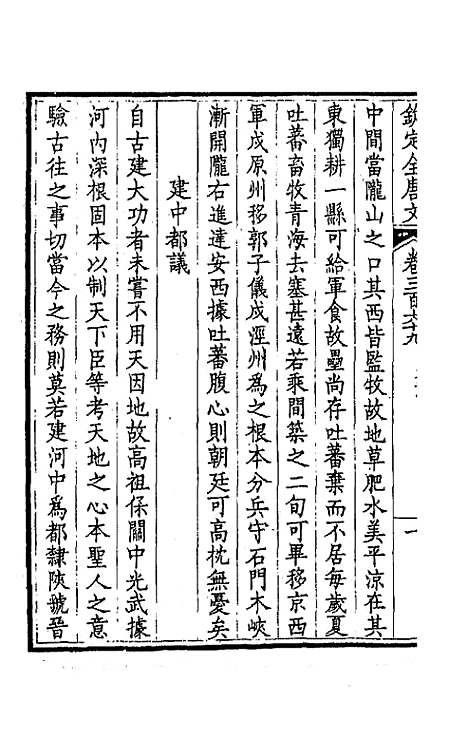 欽定全唐文 卷三百六十九
中間當隴山之口其西皆監牧故地草肥水美平涼在其
東獨耕一縣可給軍食故壘尚存吐蕃棄而不居每歲夏
吐蕃畜牧青海去塞甚遠若乘間築之二旬可畢移京西
軍戍原州移郭子儀戍涇州為之根本分兵守石門木峽
漸開隴右進達安西據吐蕃腹心則朝廷可高枕無憂矣
建中都議
自古建大功者未嘗不用天因地故高祖保關中光武據
河內深根固本以制天下臣等考天地之心本聖人之意
驗古往之事切當今之務則莫若建河中為都隸陝虢晉